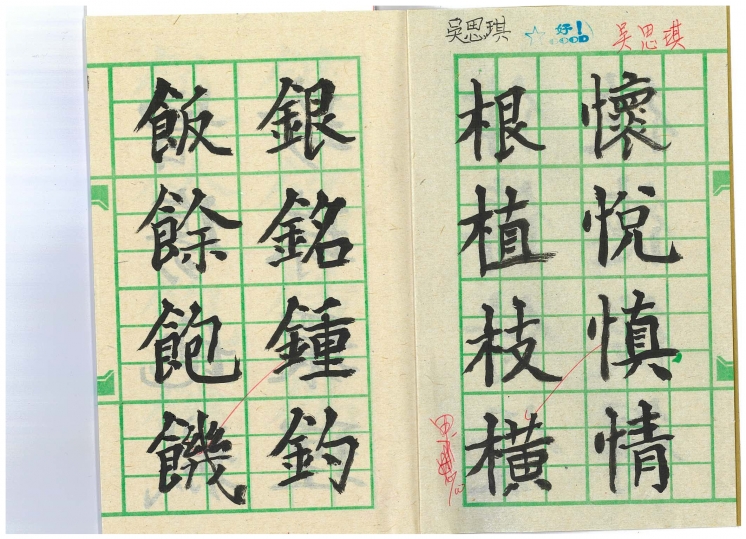 吳思琪 好! GOOD 吳思琪
懷悅慎情
根植枝橫
銀銘鍾鈞
飯餘飽饑